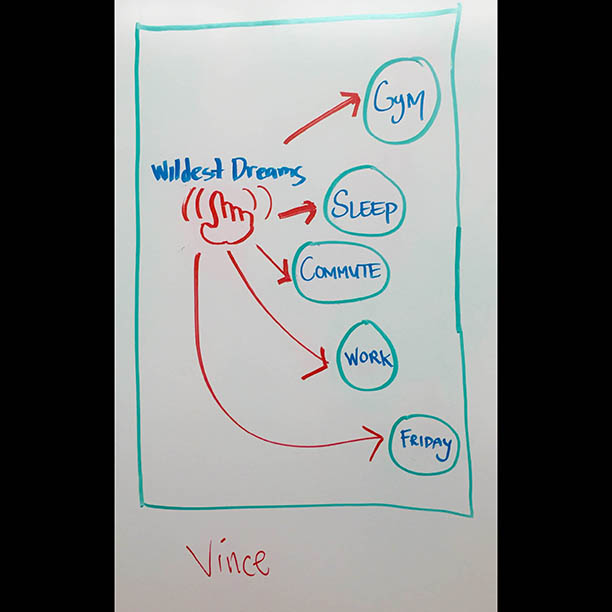 Gym
Wildest Dreams
SLEEP
COMMUTE
WORK
FRIDAY
Vince